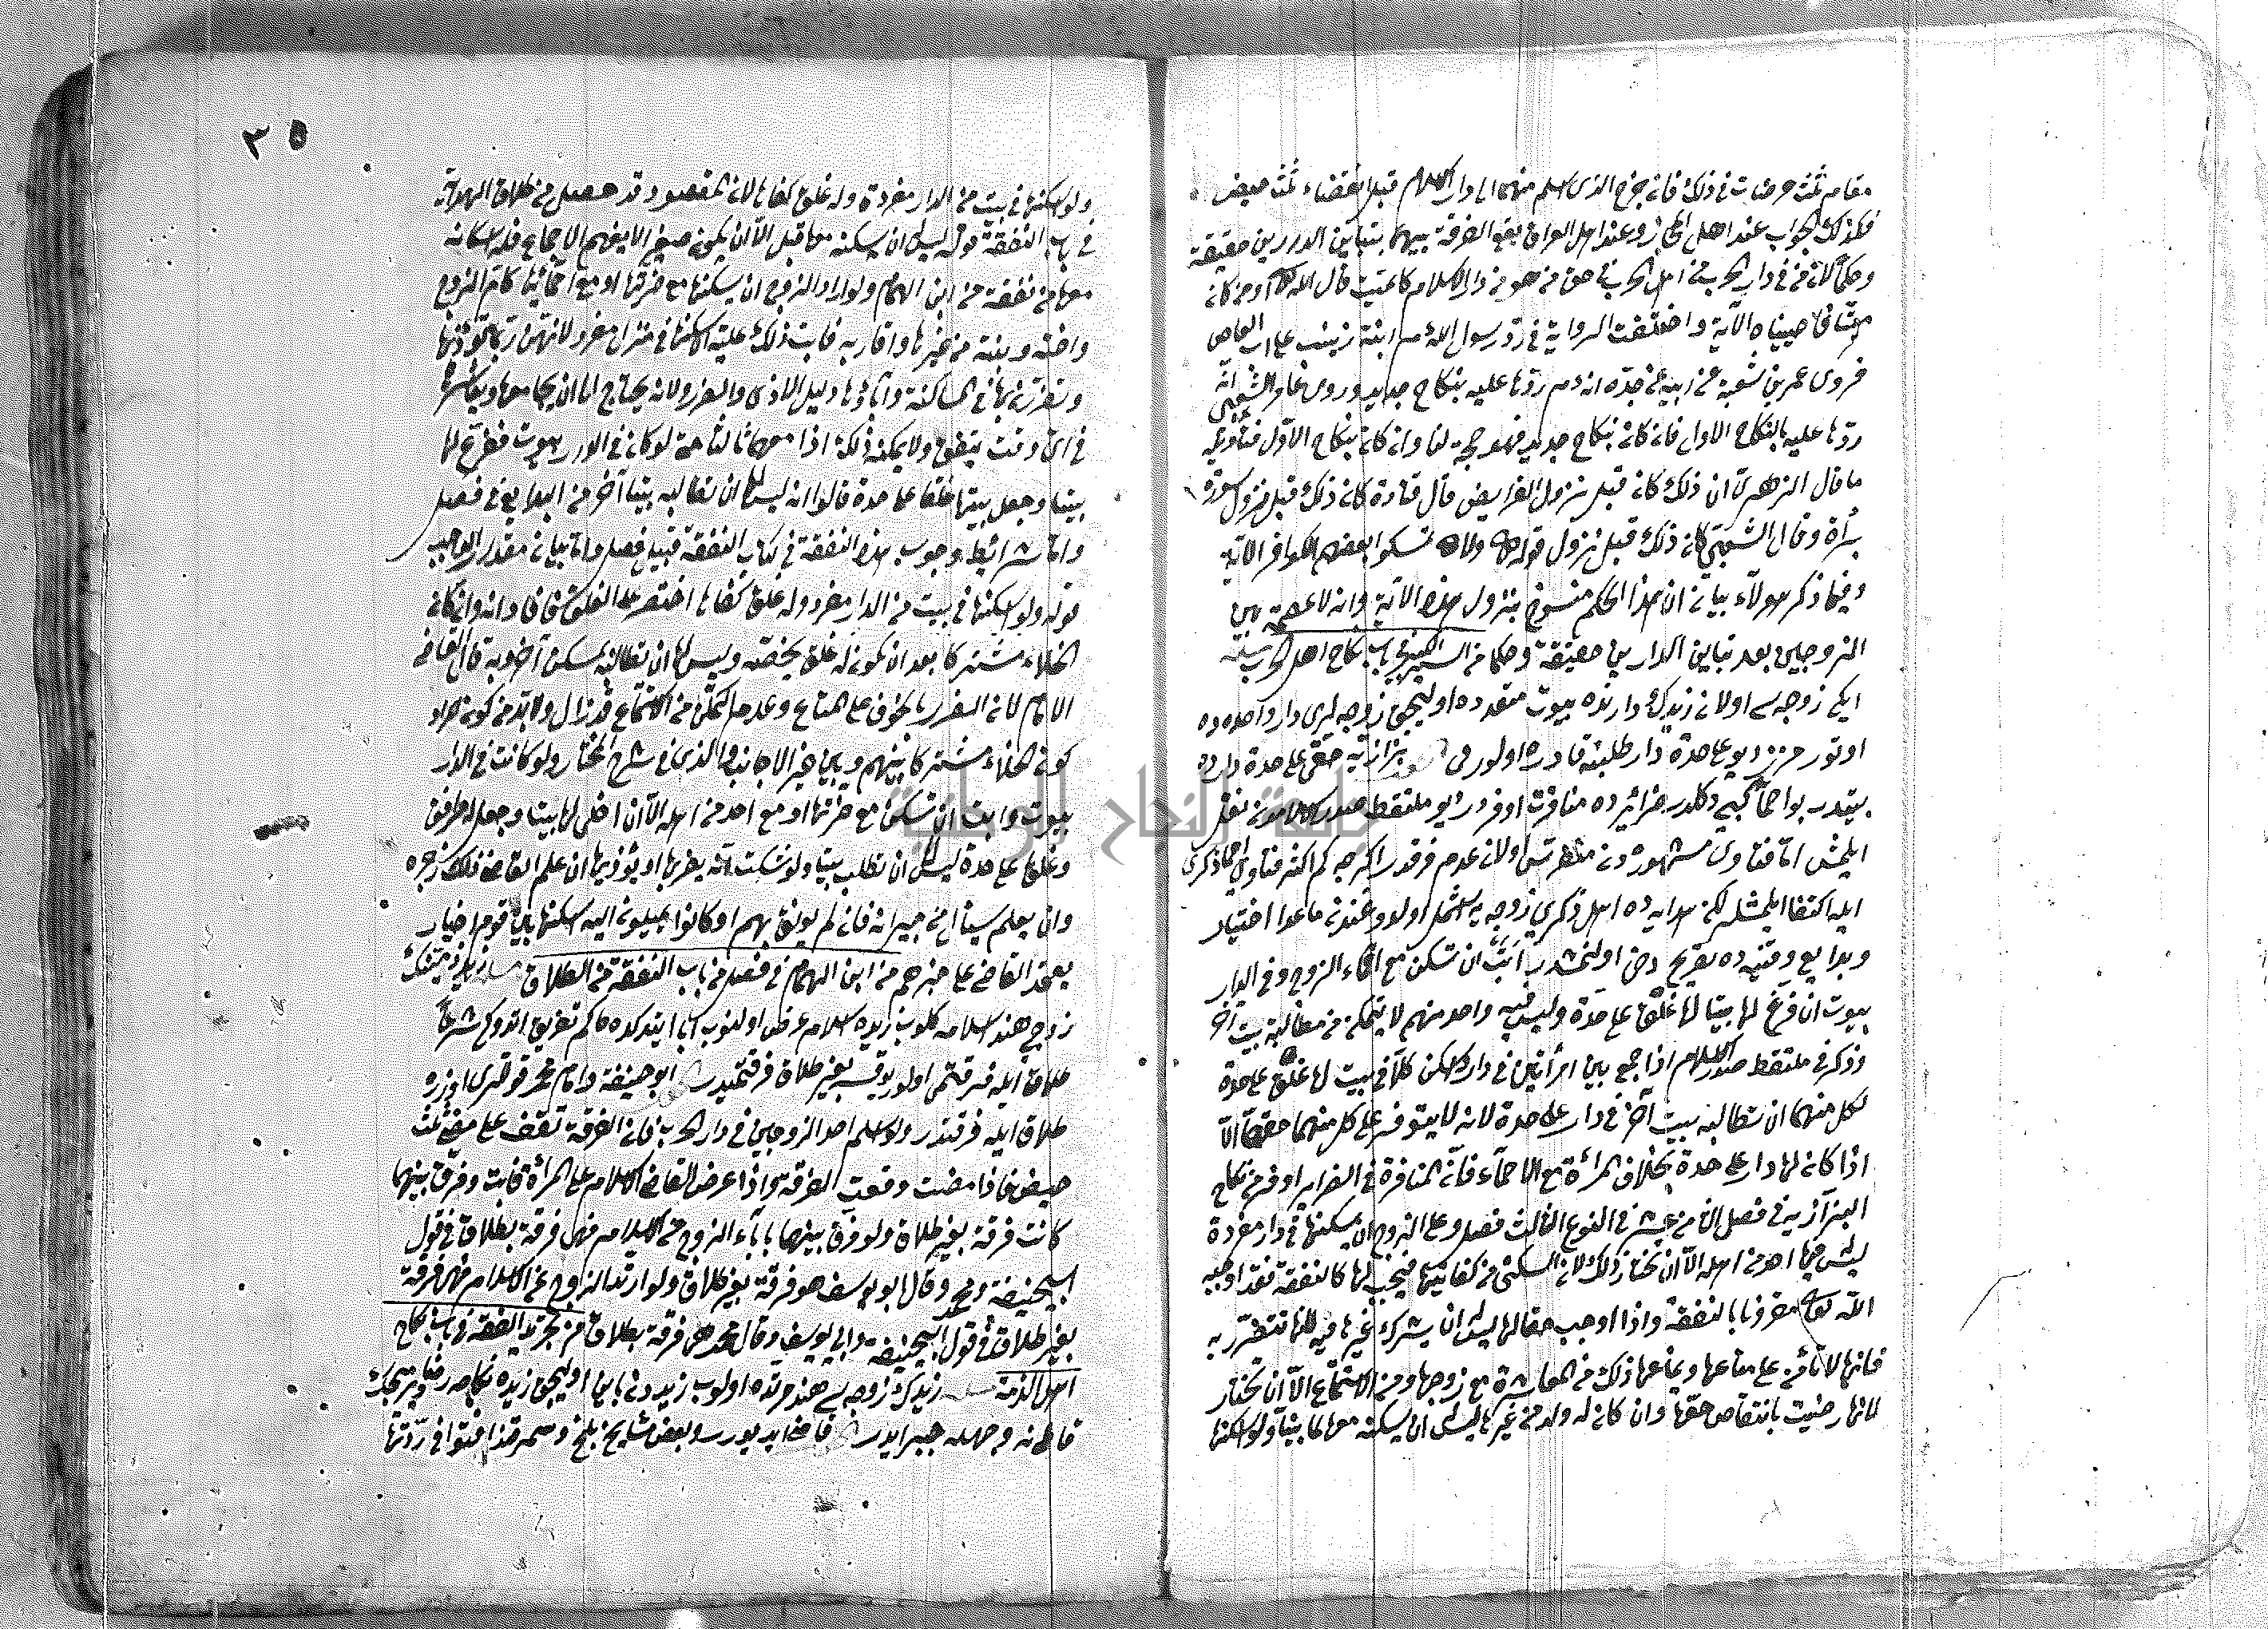 مقام ثلث حيضات في ذلك فانه خرج الذي اسلم منهما الى دار الاسلام قبل انقضاء ثلث حيض
فكذلك الجواب عند اهل الحجاز وعند اهل العراق يقع الفرقة بينهما بتباين الدارين حقيقة
وحكما لانه من في دار الحرب من اهل الحرب في حق من هو من دار الاسلام كالميت قال الله او من كان
ميتا فاحييناه الآية واختلفت الرواية في رد رسول الله ابنة زينب على ابى العاص
فروى عمر بن شعبة عن ابيه عن جده انه ردها عليه بنكاح جديد وروى عامر الشعبي انه
ردها عليه بالنكاح الاول فانه كان بنكاح جديد فهو حجة لنا وان كان بنكاح الاول
ما قال الزهري ان ذلك كان قبل نزول الفرايض قال قتادة كان ذلك قبل نزول سورة
برأة وقال الشعبي كان ذلك قبل نزول قوله ولا تمسكوا بعصم الكوافر الآية
وفيما ذكر هؤلاء بيان ان هذا الحكم منسوخ بنزول هذه الآية وانه لا عصمة بين
الزوجين بعد تباين الدارين حقيقة وحكما من السير الكبير في باب نكاح اهل الحرب
ايكى زوجه سى اولان زيدك دارنده بيوت متعدده اوليجق زوجه لرى دار واحده ده
اوتور حرز ديو على حدة دار طلبنه قادره اولورمى بزازيه حقى على حدة دارده
يتدر بو احماء كبى دكلدر ضرائرده منافرت اوفردر ديو ملتقط صدر الاسلامدن نقل
ايلمش اما فتاوى مشهوره دن اولان عدم فرقدر اكرچه كم اكثر فتاوى احما ذكرى
ايله اكتفا ايلمشلر لكن هدايه ده اهل ذكرى زوجه يه شامل اولدوغندن ماعدا اختيار
وبدايع وقنيه ده تصريح دخى اولنمشدر ابت ان تسكن مع احماء الزوج وفي الدار
بيوت ان فرغ لها بيتا لها غلق على حدة وليس فيه واحد منهم لا تتمكن من مطالبة بيت آخر
وذكر في ملتقط صدر الاسلام اذا جمع بين امرأتين في دار واسكن كلا في بيت لها غلق على حدة
لكل منهما ان تطالبه ببيت آخر في دار على حدة لانه لا يتوفر على كل منهما حقهما الا
اذا كان لها دار على حدة بخلاف المرأة مع الاحماء فان المنافرة في الضراير اوفر من نكاح
البزازيه في فصل الثامن عشر في النوع الثالث فصل وعلى الزوج ان يسكنها في دار مفردة
ليس فيها احد من اهله الا ان تختار ذلك لان السكنى من كفايتها فيجب لها كالنفقة فقد اوجبه
الله تعالى مقرونا بالنفقة واذا اوجب حقا لها ليس له ان يشرك غيرها فيه لانها تتضرر به
فانها لا تأمن على متاعها ويمنعها ذلك من المعاشرة مع زوجها ومن الاستمتاع الا ان تختار
لانها رضيت بانتقاص حقها وان كان له ولد من غيرها ليس له ان يسكنه معها لما بينا ولو اسكنها
٣٥
ولو اسكنها في بيت من الدار مفردة وله غلق كفاها لان المقصود قد حصل من طلاق الهداية
في باب النفقة قوله ليس له ان يسكنه معها قبل الا ان يكون صغيرا لا يفهم الجماع فله اسكانه
معها من نفقة من ابن الهمام ولو اراد الزوج ان يسكنها مع ضرتها او مع احمائها كام الزوج
واخته وبنته من غيرها واقاربه فابت ذلك عليه ان يسكنها في منزل مفرد لانهن ربما يؤذينها
ويضررن بها في المساكنة واباؤها دليل الاذى والضرر ولانه يحتاج الى ان يجامعها ويعاشرها
في اى وقت يتفق ولا يمكنه ذلك اذا معهما ثالث حتى لو كان في الدار بيوت ففرغ لها
بيتا وجعل بيتها غلقا على حدة قالوا انه ليس لها ان تطالبه بيتا آخر من البدايع في فصل
واما شرائط وجوب هذه النفقة في كتاب النفقة قبيل فصل واما بيان مقدار الواجب
قوله ولو اسكنها في بيت من الدار مفرد وله غلق كفاها اقتصر على الغلق فافاد انه وان كان
الخلاء مشتركا بعد ان يكون له غلق يخصه وليس لها ان تطالبه بمسكن آخر وبه قال القاضى
الامام لان الضرر بالخوف على المتاع وعدم التمكن من الاستمتاع قد زال ولا بد من كون المراد
كون الخلاء مشتركا بينهم وبين غير الاجانب والذى في شرح المختار ولو كانت في الدار
بيوت وابت ان تسكن مع ضرتها او مع احد من اهله الا ان اخلى لها بيتا وجعل له مرافق
وغلقا على حدة ليس لها ان تطلب بيتا ولو شكت انه يضربها او يؤذيها ان علم القاضى ذلك زجره
وان لم يعلم سأل من جيرانه فان لم يوثق بهم او كانوا يميلون اليه اسكنها بين قوم اخيار
يعتمد القاضى على خبرهم من ابن الهمام في فصل من باب النفقة من الطلاق
زوجى هند اسلامه كلوب زيده اسلام عرض اولنوب ابا ايتدكده حاكم تفريق اتدوكى شرعا
طلاق ايله فرقتمى اولور يوقسه بغير طلاق فرقتميدر ابو حنيفة وامام محمد قوللرى اوزره
طلاق ايله فرقتدر ولو اسلم احد الزوجين في دار الحرب فان الفرقة تقف على مضى ثلث
حيض فاذا مضت وقعت الفرقة واذا عرض القاضى الاسلام على المرأة فابت وفرق بينهما
كانت فرقة بغير طلاق ولو فرق بينهما باباء الزوج من الاسلام فهى فرقة بطلاق في قول
ابيحنيفة ومحمد وقال ابو يوسف هو فرقة بغير طلاق ولو ارتد الزوج عن الاسلام فهى فرقة
بغير طلاق في قول ابيحنيفة وابى يوسف وقال محمد هى فرقة بطلاق من تجريد الفقه في باب نكاح
اهل الذمة زيدك زوجه سى هند مرتده اولوب زيددن باين اوليجق زيده نكاحه رضا ويرميجك
قاضى نه وجهله جبر ايدر وبعض مشايخ بلخ وسمرقند افتوا في ردتها